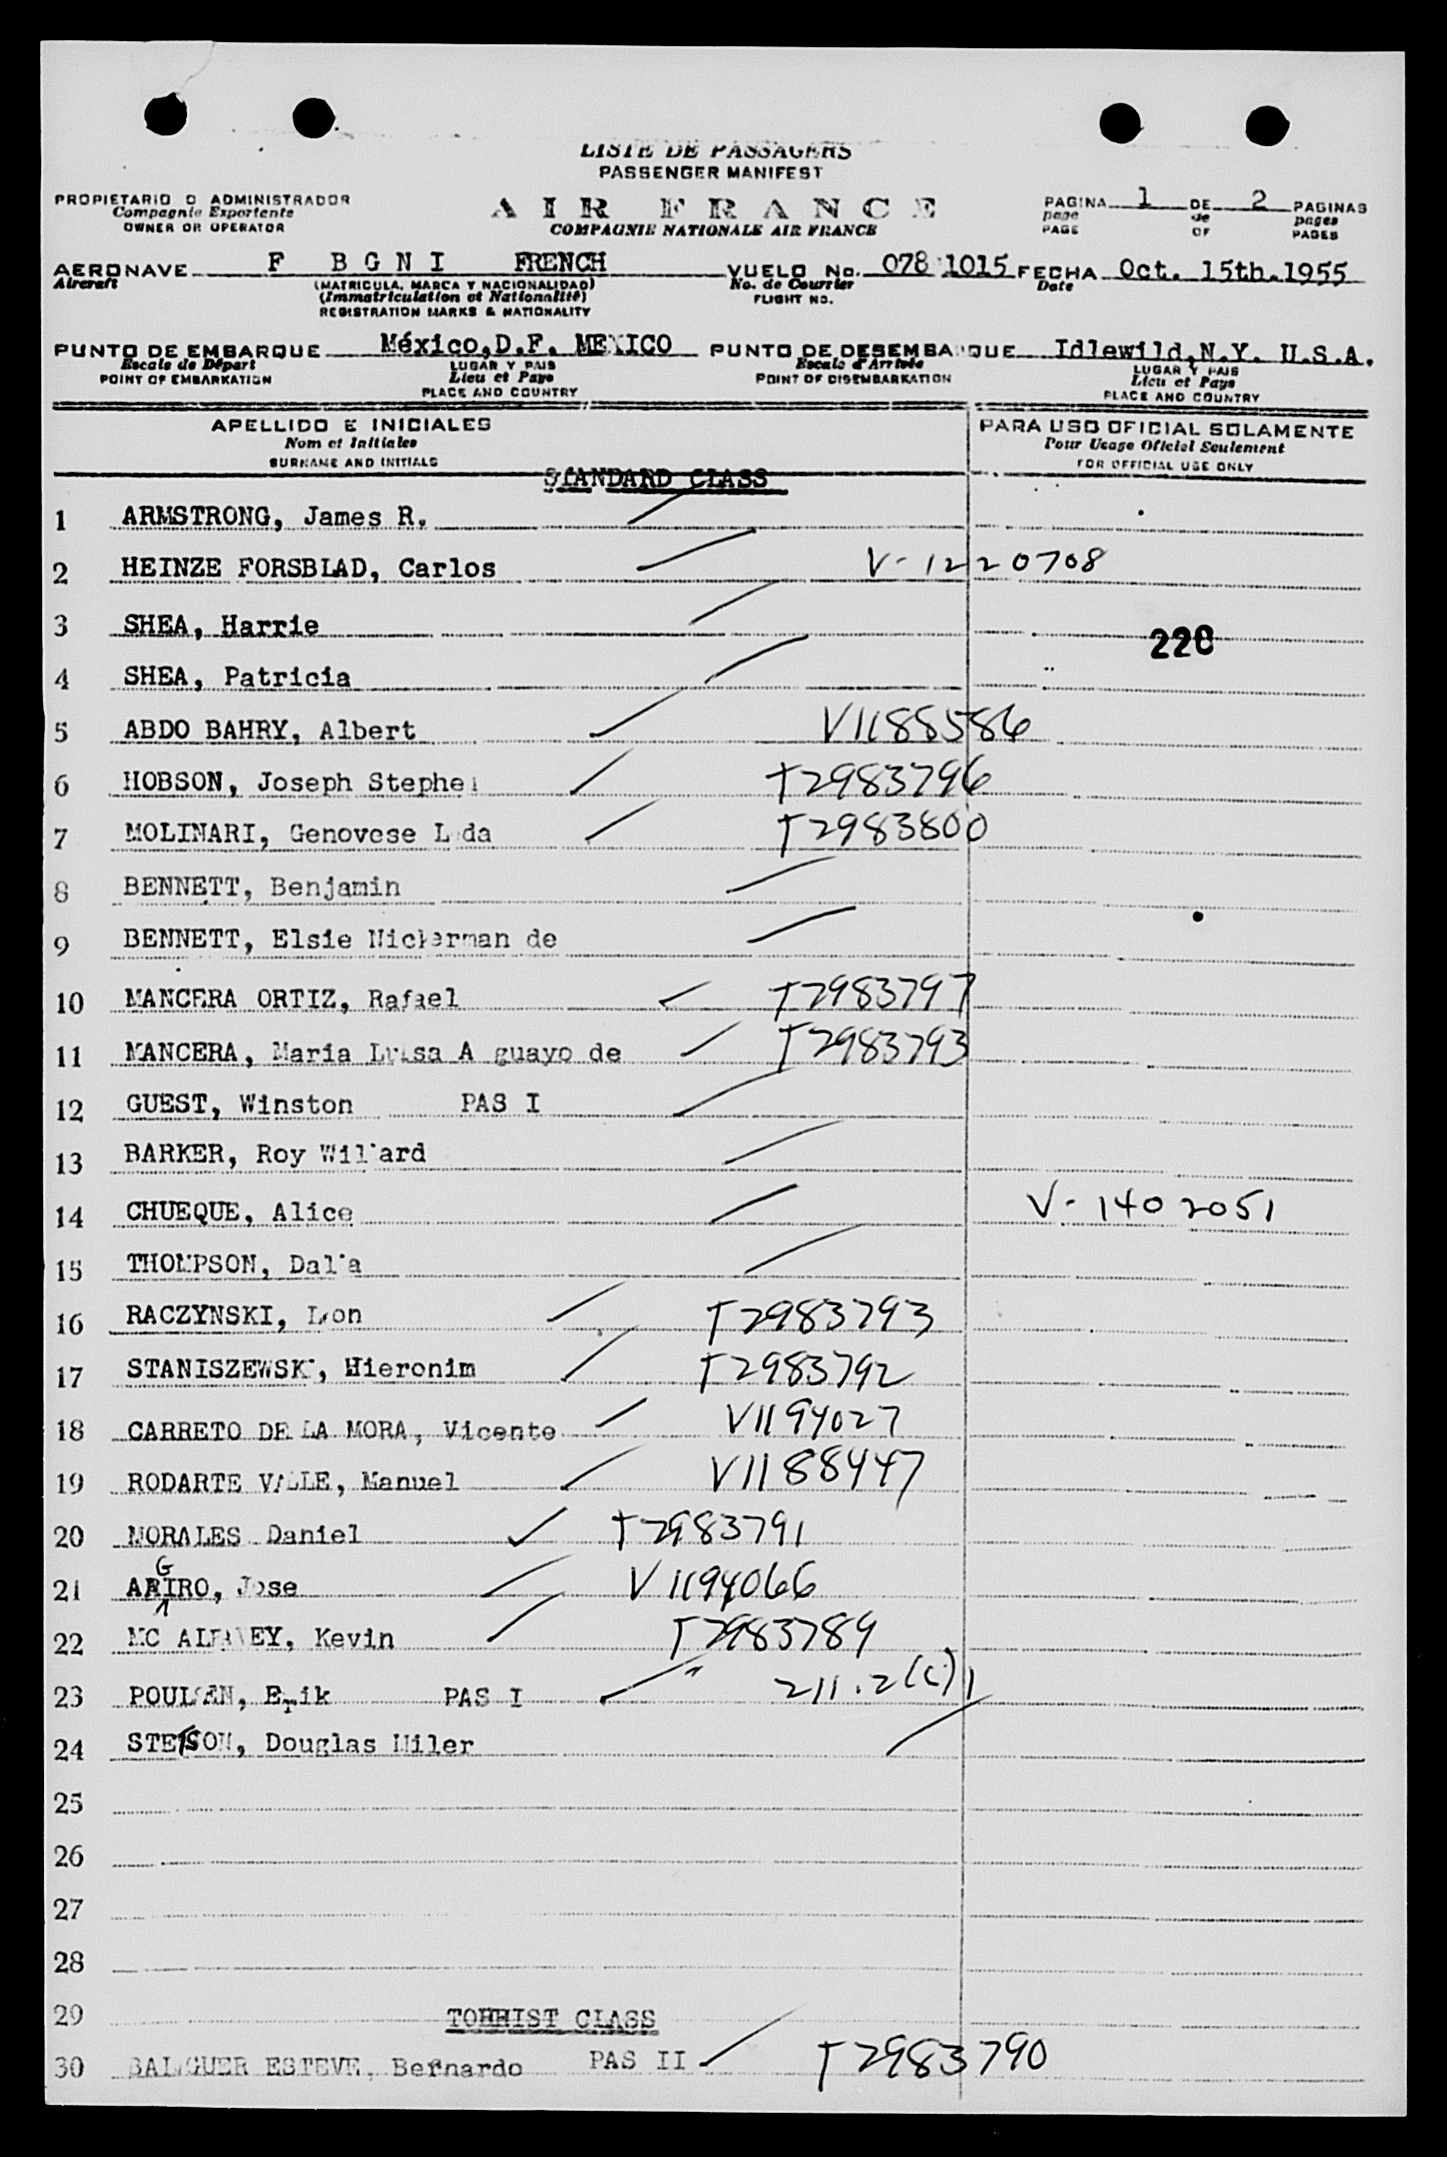 LISTE DE PASSAGERS
PASSENGER MANIFEST
PROPIETARIO O ADMINISTRADOR
Compagnie Exportente
OWNER OR OPERATOR
AIR FRANCE
COMPAGNIE NATIONALE AIR FRANCE
PAGINA 1 DE 2 PAGINAS
page de pages
PAGE OF PAGES
AERONAVE F BGNI FRENCH VUELO No. 078 1015 FECHA Oct. 15th.1955
Aircraft (MATRICULA, MARCA Y NACIONALIDAD) No. de Courrier Date
(Immatriculation et Nationalité) FLIGHT NO.
REGISTRATION MARKS & NATIONALITY
PUNTO DE EMBARQUE México,D.F. MEXICO PUNTO DE DESEMBARQUE Idlewild,N.Y. U.S.A.
Escale de Départ LUGAR Y PAIS Escale d'Arrivée LUGAR Y PAIS
POINT OF EMBARKATION Lieu et Pays POINT OF DISEMBARKATION Lieu et Pays
PLACE AND COUNTRY PLACE AND COUNTRY
APELLIDO E INICIALES PARA USO OFICIAL SOLAMENTE
Nom et Initiales Pour Usage Oficiel Seulement
SURNAME AND INITIALS FOR OFFICIAL USE ONLY
STANDARD CLASS
1 ARMSTRONG, James R.
2 HEINZE FORSBLAD, Carlos V-1220708
3 SHEA, Harrie 228
4 SHEA, Patricia
5 ABDO BAHRY, Albert V1188586
6 HOBSON, Joseph Stephe T2983796
7 MOLINARI, Genovese L da T2983800
8 BENNETT, Benjamin
9 BENNETT, Elsie Nickerman de
10 MANCERA ORTIZ, Rafael T2983797
11 MANCERA, Maria Luisa A guayo de T2983793
12 GUEST, Winston PAS I
13 BARKER, Roy Willard
14 CHUEQUE, Alice V-1402051
15 THOMPSON, Dal a
16 RACZYNSKI, Leon T2983793
17 STANISZEWSKI, Hieronim T2983792
18 CARRETO DE LA MORA, Vicente V1194027
19 RODARTE VALLE, Manuel V1188447
20 MORALES Daniel T2983791
G
21 ARIRO, Jose V1194066
22 MC ALEAVEY, Kevin T2983789
23 POULSEN, Erik PAS I " 211.2(c)1
24 STETSON, Douglas Miler
25
26
27
28
29 TOURIST CLASS
30 BALAGUER ESTEVE, Bernardo PAS II T2983790